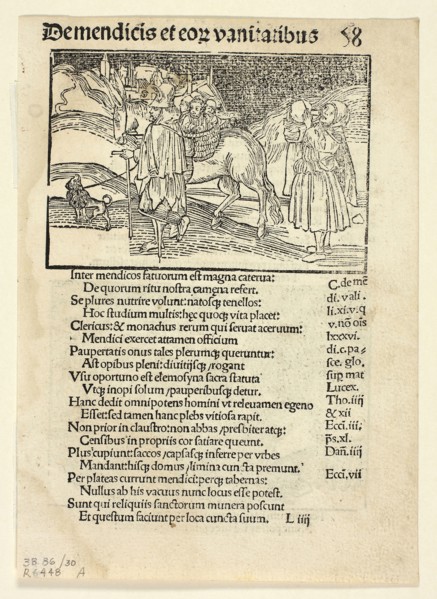 De mendicis et eoꝝ vanitatibus 58
Inter mendicos fatuorum est magna caterua:
De quorum ritu nostra camęna refert.
Se plures nutrire volunt: natosq; tenellos:
Hoc studium multis: hęc quoq; vita placet:
Clericus: & monachus rerum qui seruat aceruum:
Mendici exercet attamen officium
Paupertatis onus tales plerumq; queruntur:
Ast opibus pleni: diuitijsq; rogant
Vsu oportuno est elemosyna sacra statuta
Vtq; inopi solum / pauperibusq; detur.
Hanc dedit omnipotens homini vt releuamen egeno
Esset: sed tamen hanc plebs vitiosa rapit.
Non prior in claustro: non abbas / presbiter atq;:
Censibus in propriis cor satiare queunt.
Plus cupiunt: saccos / capsasq; inferre per vrbes
Mandant: hisq; domus / limina cuncta premunt.
Per plateas currunt mendici: perq; tabernas:
Nullus ab his vacuus nunc locus esse potest.
Sunt qui reliquiis sanctorum munera poscunt
Et questum faciunt per loca cuncta suum. L iiij
C. de mē
di. vali.
li. xi. v. q
v. nō oīs
lxxxvi.
di. c. pa⸗
sce. glo.
sup mat
Lucex.
Tho. iiij
& xii
Ecci. iii.
p̄s. xl.
Dañ. iiij
Ecci. vii
38.86/30
R6448 A